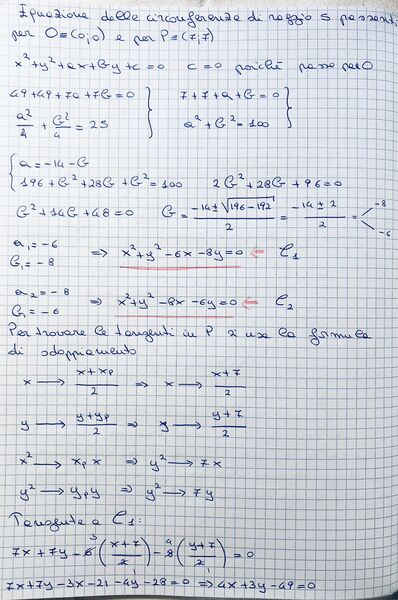 Equazione delle circonferenze di raggio 5 passanti
per O≡(0;0) e per P≡(7;7)
x²+y²+ax+by+c=0 c=0 poiché passa per O
49+49+7a+7b=0 7+7+a+b=0
a²/4 + b²/4 = 25 a²+b²=100
a=-14-b
196+b²+28b+b²=100 2b²+28b+96=0
b²+14b+48=0 b= (-14±√(196-192))/2 = (-14±2)/2 = -8 -6
a₁=-6
b₁=-8 ⇒ x²+y²-6x-8y=0 ← C₁
a₂=-8
b₂=-6 ⇒ x²+y²-8x-6y=0 ← C₂
Per trovare le tangenti in P si usa la formula
di sdoppiamento
x → (x+xₚ)/2 ⇒ x → (x+7)/2
y → (y+yₚ)/2 ⇒ y → (y+7)/2
x² → xₚx ⇒ y² → 7x
y² → yₚy ⇒ y² → 7y
Tangente a C₁:
7x+7y-6³((x+7)/2₁)-8⁴((y+7)/2₁)=0
7x+7y-3x-21-4y-28=0 ⇒ 4x+3y-49=0